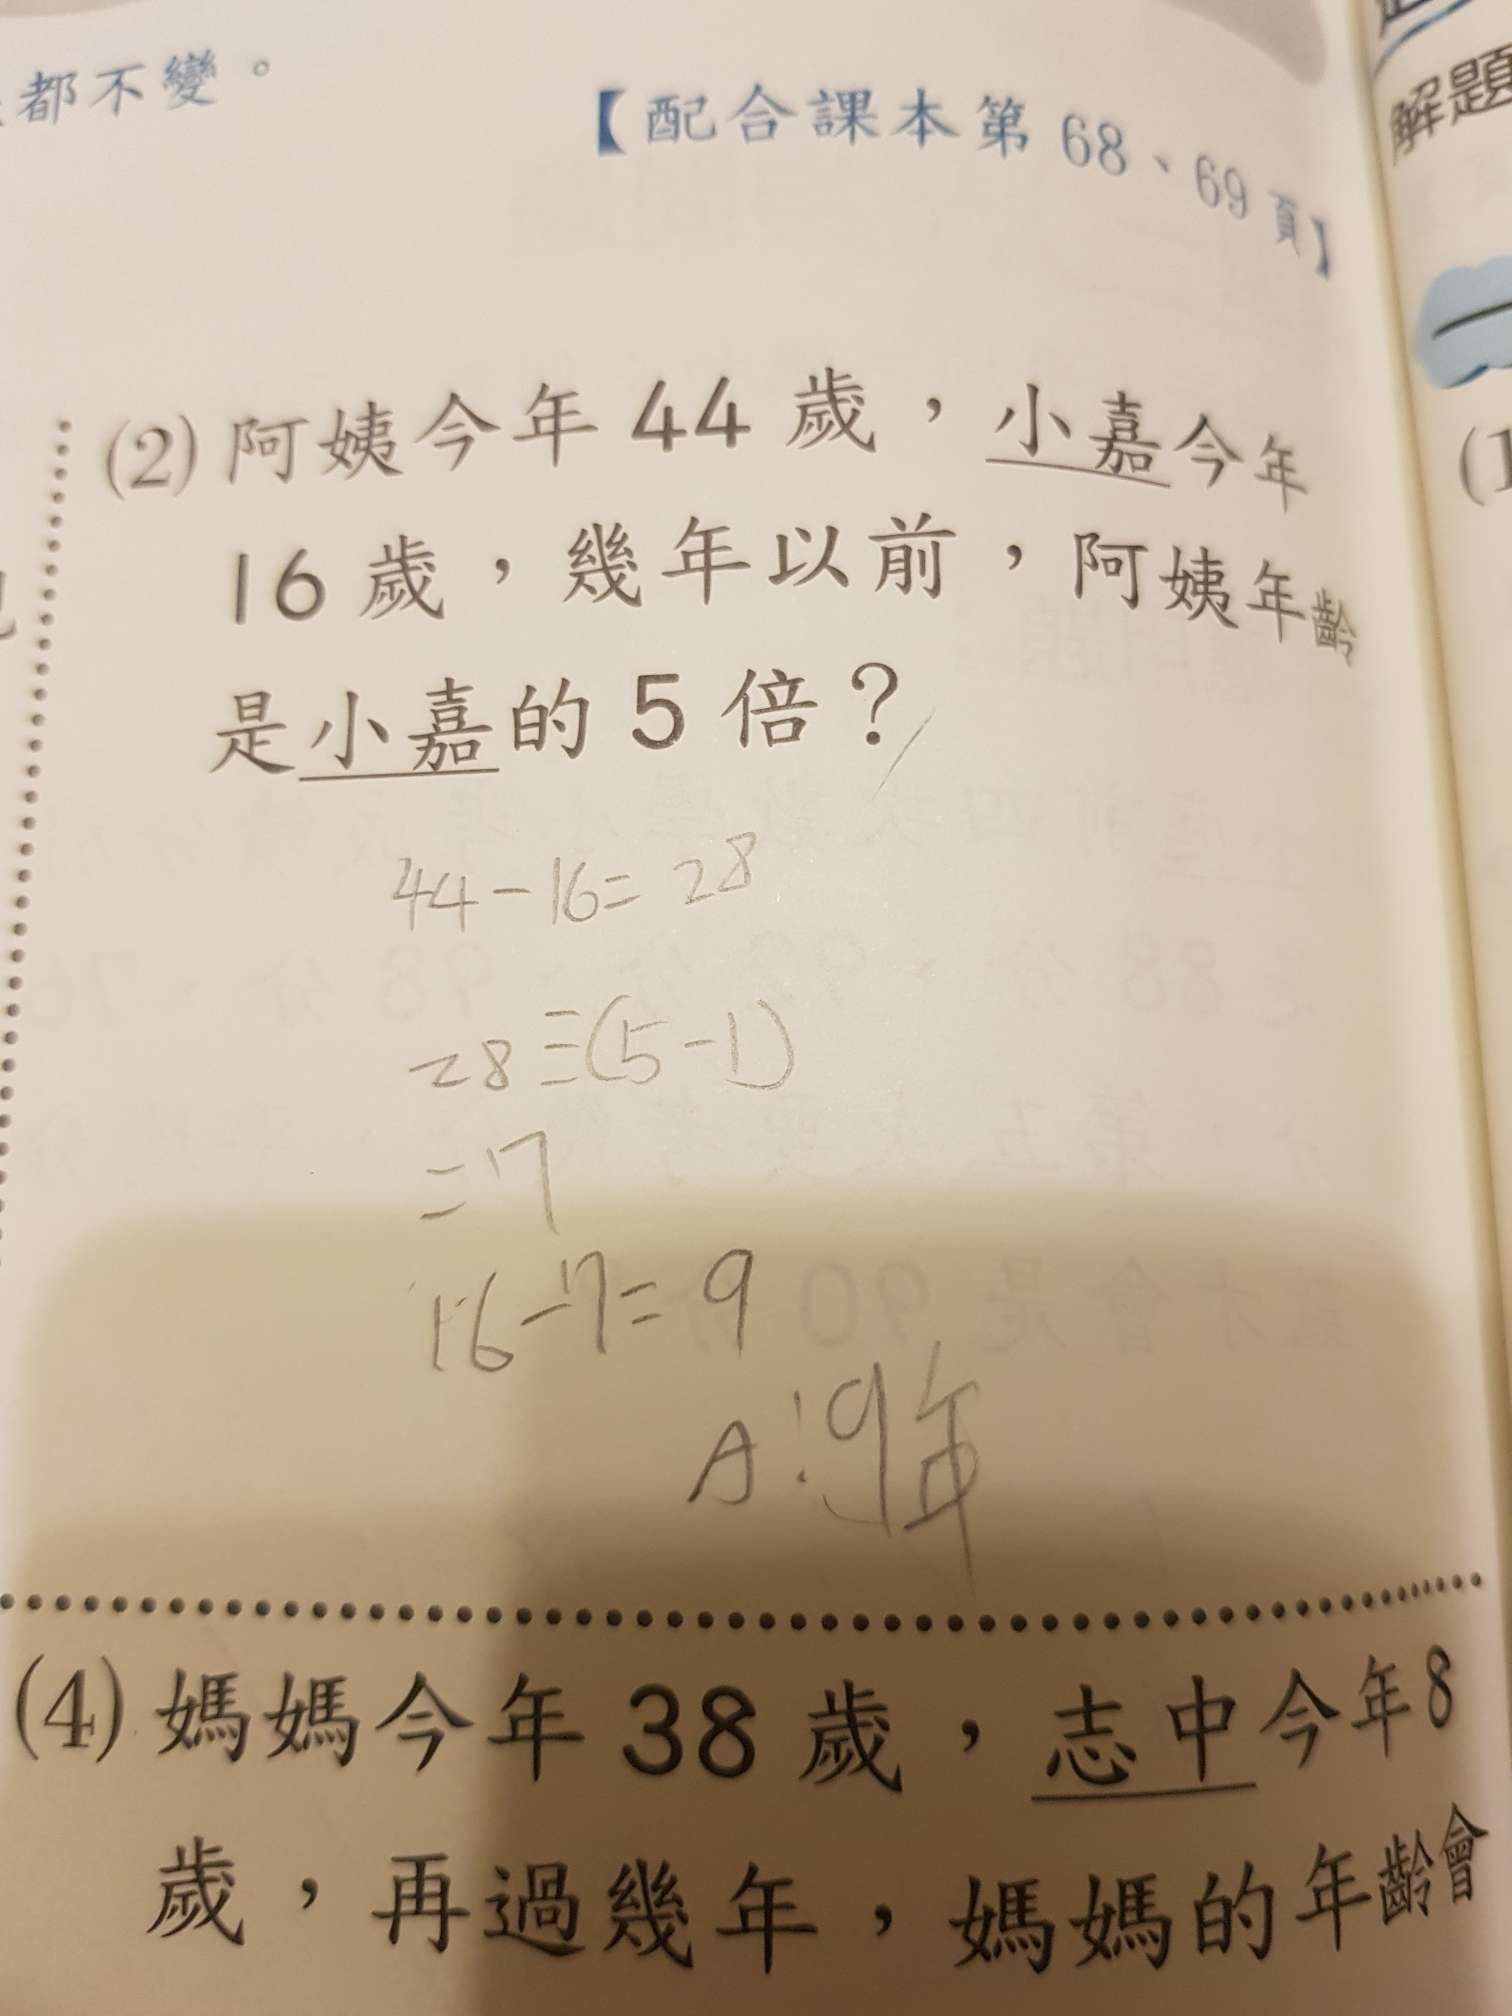 都不變。
【配合課本第 68、69 頁】
解題
(2) 阿姨今年 44 歲，小嘉今年
16 歲，幾年以前，阿姨年齡
是小嘉的 5 倍？
44-16=28
28÷(5-1)
=7
16-7=9
A:9年
(4) 媽媽今年 38 歲，志中今年 8
歲，再過幾年，媽媽的年齡會